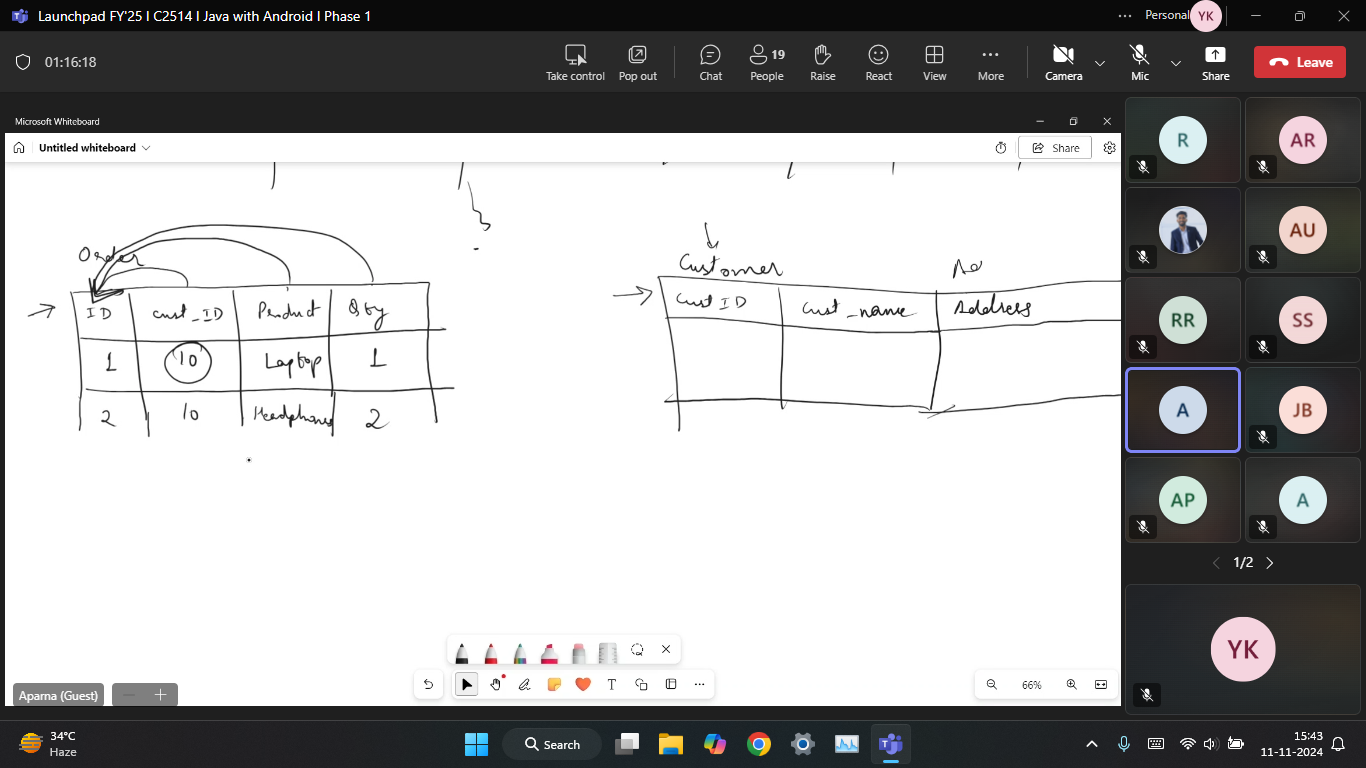 Launchpad FY'25 I C2514 I Java with Android I Phase 1
Personal
YK
01:16:18
Take control
Pop out
Chat
19
People
Raise
React
View
More
Camera
Mic
Share
Leave
Microsoft Whiteboard
Untitled whiteboard
Share
Order
ID cust_ID Product Qty
1 10 Laptop 1
2 10 Headphones 2
Customer
Cust ID cust_name Address
R
AR
AU
RR
SS
A
JB
AP
A
1/2
YK
66%
Aparna (Guest)
34°C
Haze
Search
15:43
11-11-2024